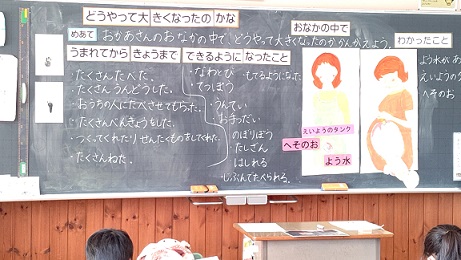 どうやって大きくなったのかな
めあて おかあさんのおなかの中で、どうやって大きくなったのかかんがえよう。
うまれてから きょうまで
・たくさんたべた。
・たくさんうんどうした。
・おうちの人にたべさせてもらった。
・たくさんべんきょうをした。
・つくってくれたり せんたくものをしてくれた。
・たくさんねた。
できるようになったこと
・なわとび
・てつぼう
もてるようになった
・うんてい
・お手つだい
のぼりぼう
たしざん
はしれる
・じぶんでたべられる。
おなかの中で
えいようのタンク
へそのお
よう水
わかったこと
よう水が
えいようの
へそのお